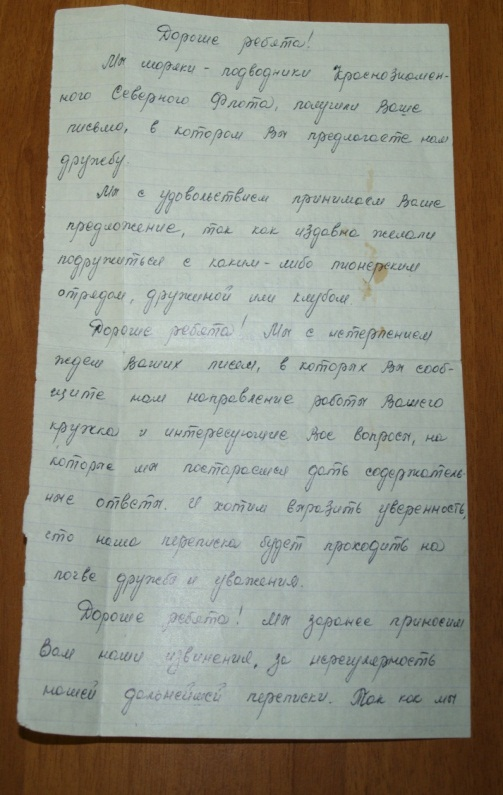 Дорогие ребята!
Мы моряки - подводники Краснознамен-
ного Северного Флота, получили Ваше
письмо, в котором Вы предлагаете нам
дружбу.
Мы с удовольствием принимаем Ваше
предложение, так как издавна желали
подружиться с каким-либо пионерским
отрядом, дружиной или клубом
Дорогие ребята! Мы с нетерпением
ждем Ваших писем, в которых Вы сооб-
щите нам направление работы Вашего
кружка и интересующие Вас вопросы, на
которые мы постараемся дать содержатель-
ные ответы. И хотим выразить уверенность,
что наша переписка будет проходить на
почве дружбы и уважения.
Дорогие ребята! Мы заранее приносим
Вам наши извинения, за нерегулярность
нашей дальнейшей переписки. Так как мы